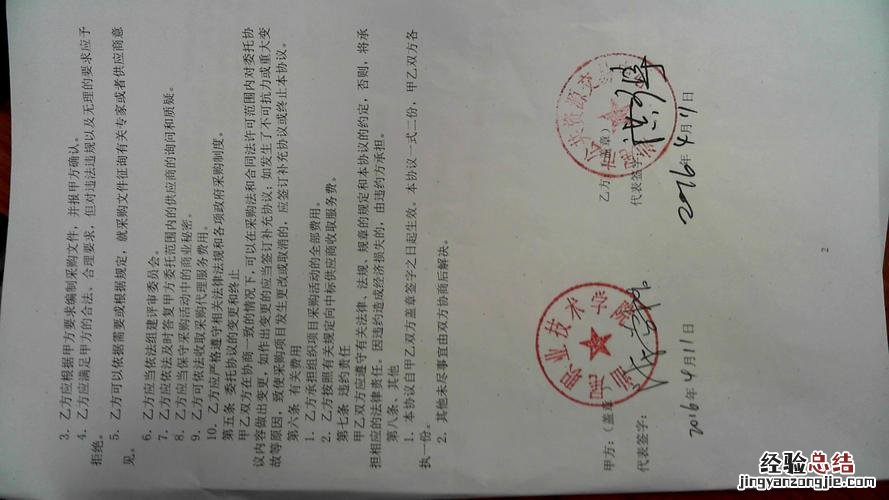 3. 乙方应根据甲方要求编制采购文件，并报甲方确认。
4. 乙方应满足甲方的合法、合理要求，但对违法违规以及无理的要求应予
拒绝。
5. 乙方可以依据需要或根据规定，就采购文件征询有关专家或者供应商意
见。
6. 乙方应当依法组建评审委员会。
7. 乙方应依法及时答复甲方委托范围内的供应商的询问和质疑。
8. 乙方应当保守采购活动中的商业秘密。
9. 乙方可依法收取采购代理服务费用。
10. 乙方应严格遵守相关法律法规和各项政府采购制度。
第五条 委托协议的变更和终止
甲乙双方在协商一致的情况下，可以在采购法和合同法许可范围内对委托协
议内容做出变更，如作出变更的应当签订补充协议；如发生了不可抗力或重大变
故等原因，致使采购项目发生更改或取消的，应签订补充协议或终止本协议。
第六条 有关费用
1. 乙方承担组织项目采购活动的全部费用。
2. 乙方按照有关规定向中标供应商收取服务费。
第七条 违约责任
甲乙双方应遵守有关法律、法规、规章的规定和本协议的约定，否则，将承
担相应的法律责任。因违约造成经济损失的，由违约方承担。
第八条、其他
1. 本协议自甲乙双方盖章签字之日起生效。本协议一式二份，甲乙双方各
执一份。
2. 其他未尽事宜由双方协商后解决。
甲方：（盖章）
乙方：（盖章）
职业技术学院
公共资源交
代表签字：
代表签字：
2016年4月11日
2016年4月11日
2
经验总结
jingyanzongjie.com